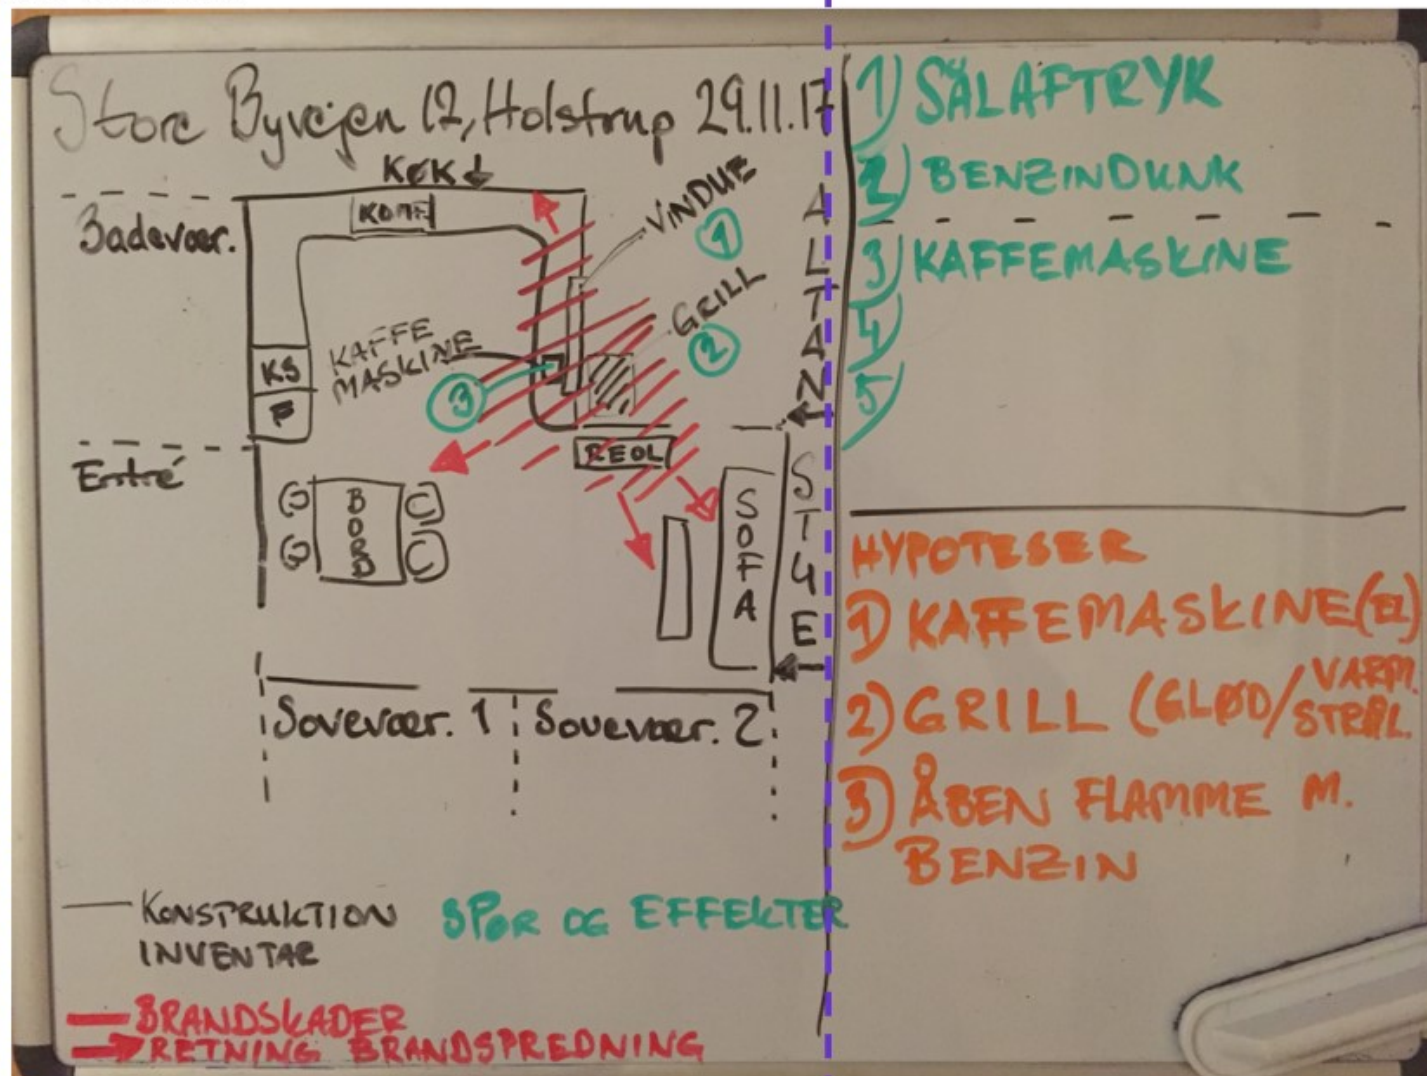 Store Byvejen 12, Holstrup 29.11.17
KØK
KOMF
Badevær.
VINDUE
1
GRILL
2
ALTAN
KAFFE
MASKINE
3
KS
F
REOL
Entré
BORD
SOFA
STUE
Sovevær. 1
Sovevær. 2
KONSTRUKTION
INVENTAR
SPOR OG EFFEKTER
BRANDSKADER
RETNING BRANDSPREDNING
1) SÅLAFTRYK
2) BENZINDUNK
3) KAFFEMASKINE
4)
5)
HYPOTESER
1) KAFFEMASKINE (EL)
2) GRILL (GLØD/VARM.
STRÅL.
3) ÅBEN FLAMME M.
BENZIN